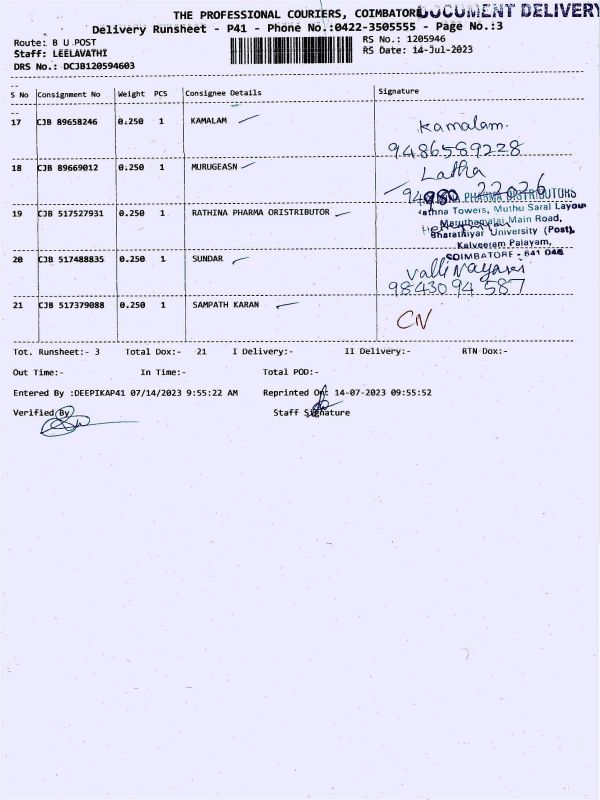 THE PROFESSIONAL COURIERS, COIMBATOR DOCUMENT DELIVERY
Delivery Runsheet - P41 - Phone No.:0422-3505555 - Page No.:3
Route: B U POST
RS No.: 1205946
Staff: LEELAVATHI
RS Date: 14-Jul-2023
DRS No.: DCJB120594603
S No Consignment No Weight PCS Consignee Details Signature
17 CJB 89658246 0.250 1 KAMALAM
Kamalam.
9486569228
18 CJB 89669012 0.250 1 MURUGEASN
Latha
PHARMA DISTRIBUTORS
19 CJB 517527931 0.250 1 RATHINA PHARMA ORISTRIBUTOR
Towers, Muthu Saral Layout
Maruthamalai Main Road,
Bharathiyar University (Post),
Kalveeram Palayam,
COIMBATORE - 641 046
20 CJB 517488835 0.250 1 SUNDAR
Valli Nayagi
9843094587
21 CJB 517379088 0.250 1 SAMPATH KARAN
CN
Tot. Runsheet:- 3 Total Dox:- 21 I Delivery:- II Delivery:- RTN Dox:-
Out Time:- In Time:- Total POD:-
Entered By :DEEPIKAP41 07/14/2023 9:55:22 AM Reprinted On: 14-07-2023 09:55:52
Verified By Staff Signature